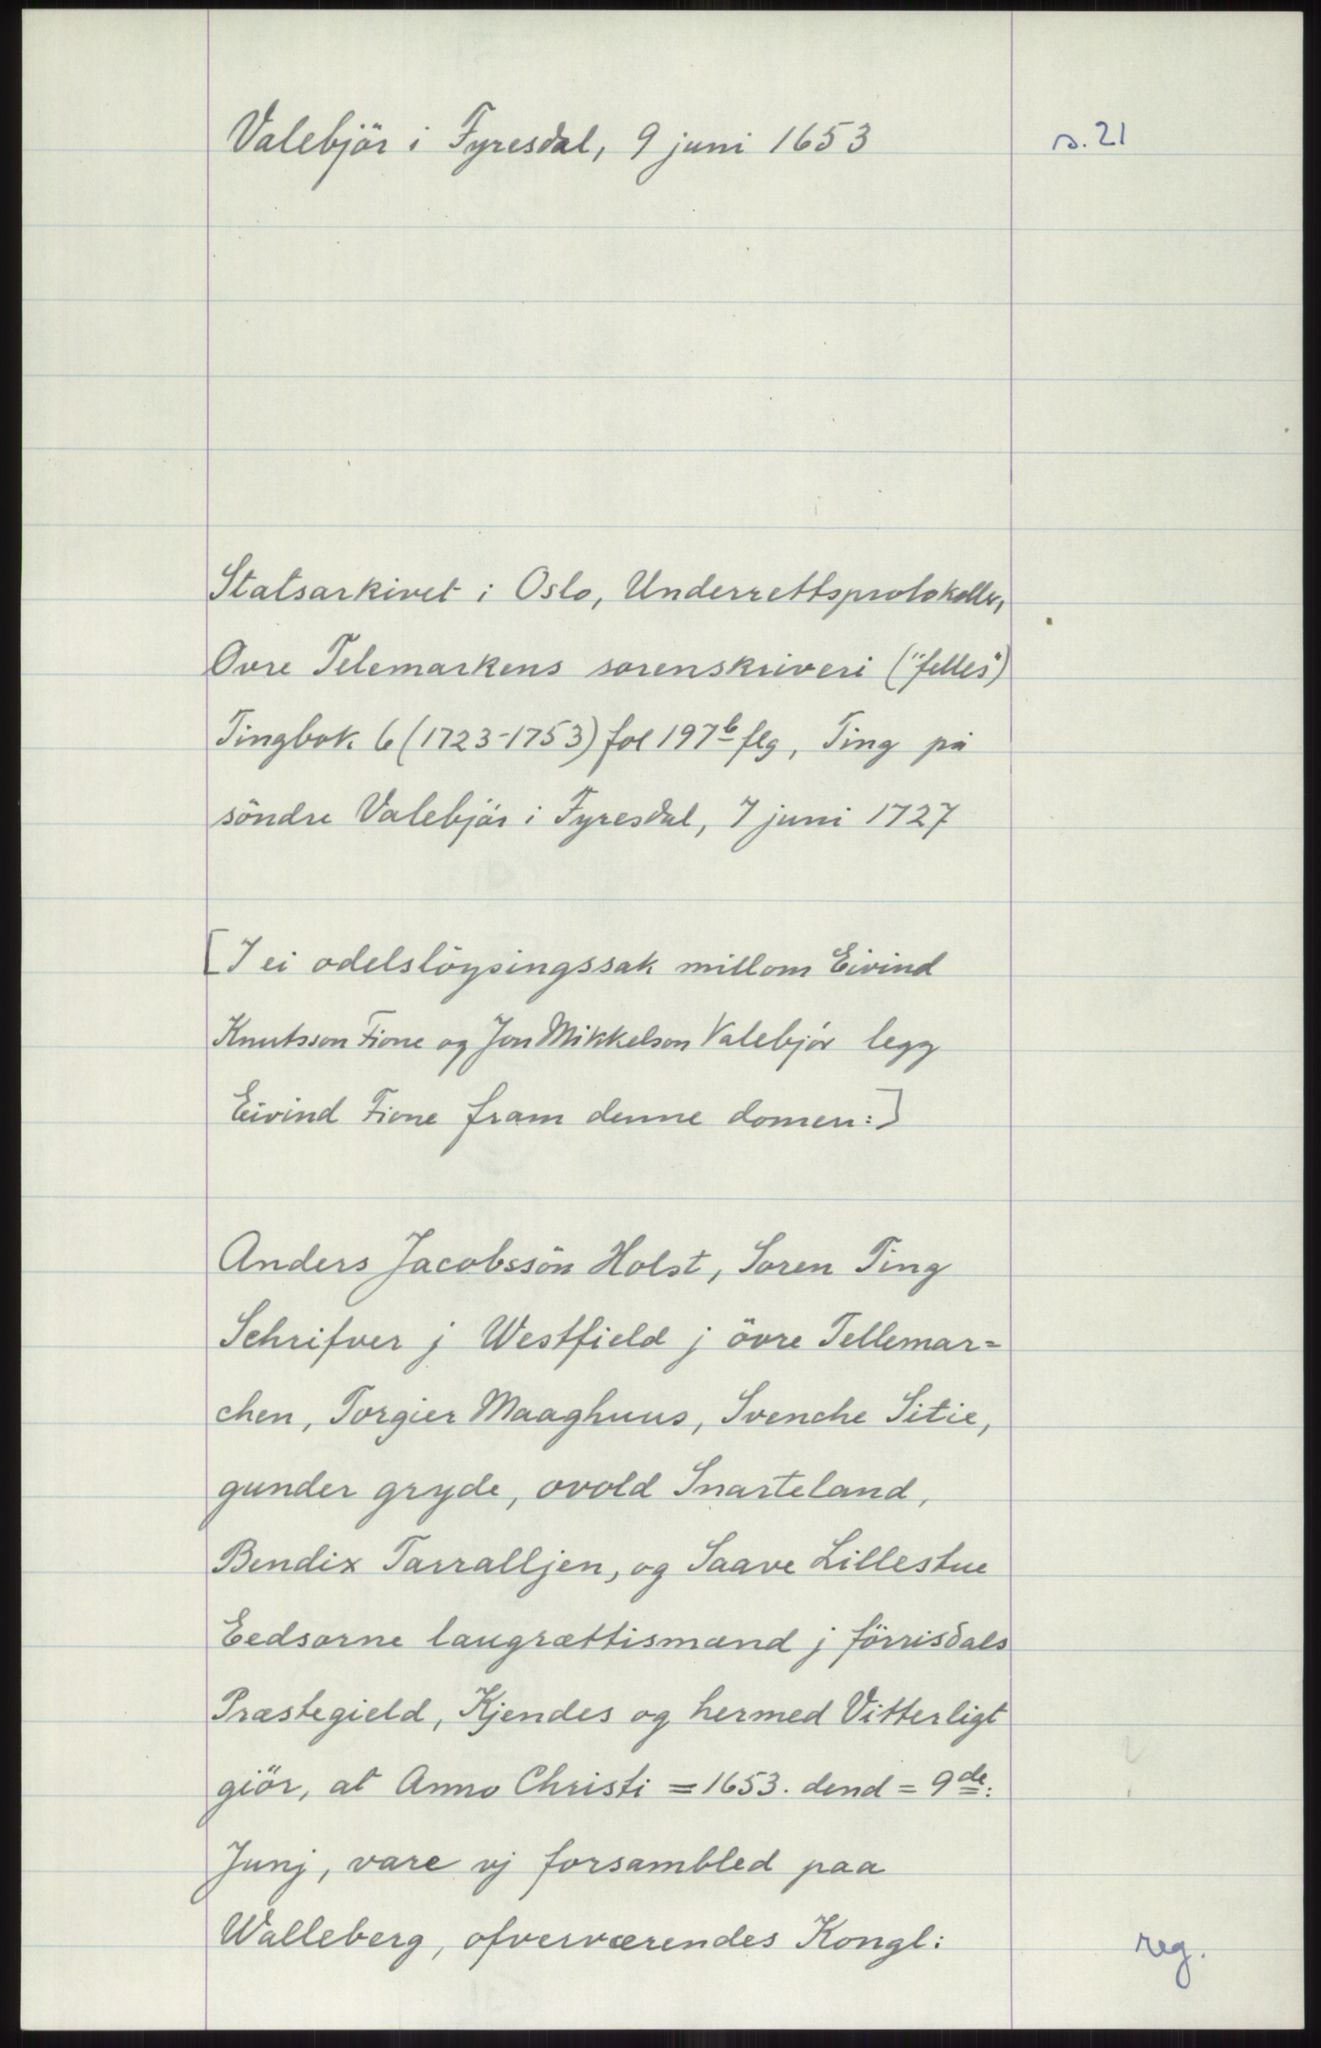 Valebjör i Fyresdal, 9 juni 1653
s. 21
Statsarkivet i Oslo, Underrettsprotokoller,
Övre Telemarkens sorenskriveri ("felles")
Tingbok 6 (1723-1753) fol 197b flg, Ting på
söndre Valebjör i Fyresdal, 7 juni 1727
[I ei odelslöysingssak millom Eivind
Knutsson Fione og Jon Mikkelson Valebjör legg
Eivind Fione fram denne domen:]
Anders Jacobssön Holst, Soren Ting
Schrifver j Westfield j övre Tellemar=
chen, Torgier Maaghuus, Svenche Sitie,
gunder gryde, ovold Snarteland,
Bendix Tarralljen, og Saave Lillestue
Eedsorne laugrættismænd j förrisdals
Præstegield, Kjendes og hermed Vitterligt
giör, at Anno Christi = 1653. dend = 9de:
Junj, vare vj forsambled paa
Walleberg, ofverværendes Kongl:
reg.